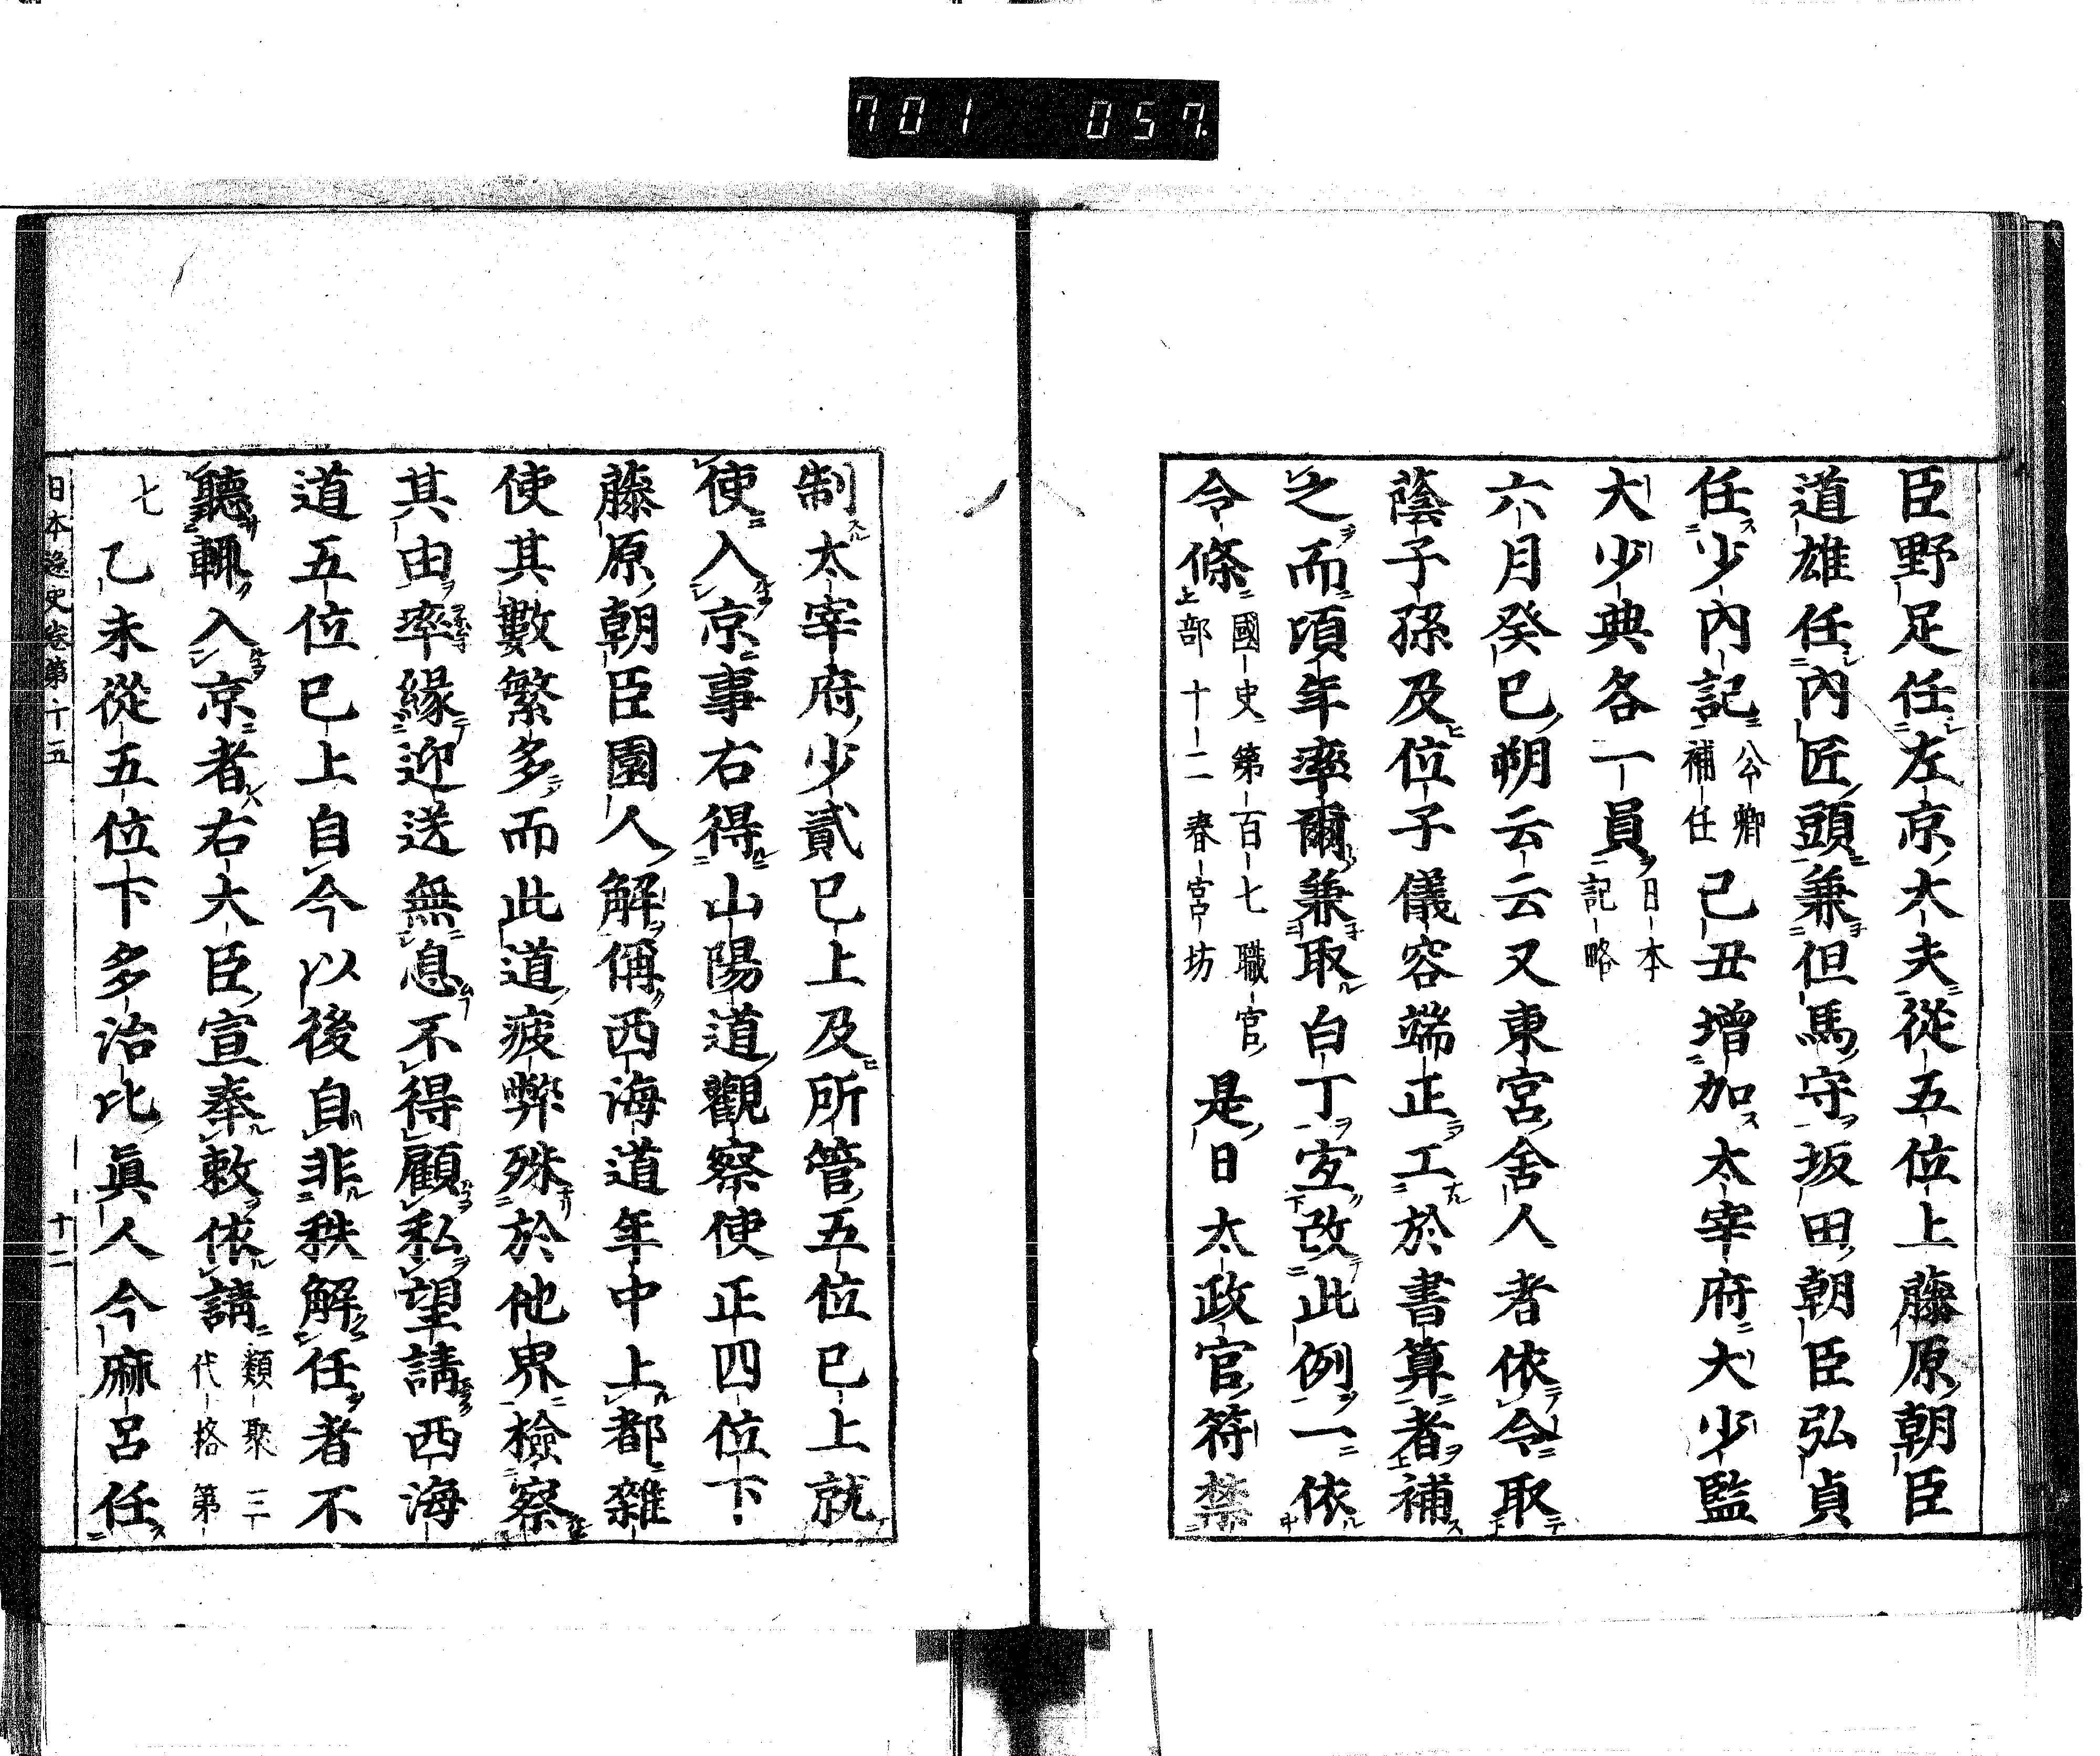 701 057
臣野足任左京大夫從五位上藤原朝臣
道雄任內匠頭兼但馬守坂田朝臣弘貞
任少內記公卿補任己丑增加太宰府大少監
大少典各一員日本記略
六月癸巳朔云云又東宮舍人者依令取
蔭子孫及位子儀容端正工於書算者補
之而頃年率爾兼取白丁宜改此例一依
令條國史第百七職官部十二春宮坊是日太政官符禁
制太宰府少貳已上及所管五位已上就
使入京事右得山陽道觀察使正四位下
藤原朝臣園人解偁西海道年中上都雜
使其數繁多而此道疲弊殊於他界檢察
其由率緣迎送無息不得顧私望請西海
道五位已上自今以後自非秩解任者不
聽輙入京者右大臣宣奉敕依請類聚三代格第
七乙未從五位下多治比眞人今麻呂任
日本逸史卷第十五 十二